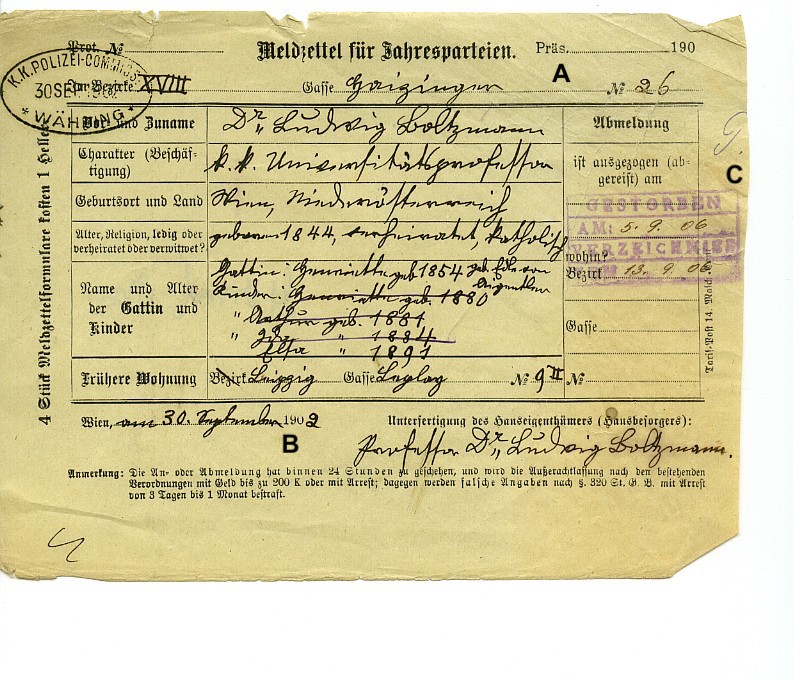 Prot. № Meldzettel für Jahresparteien. Präs. 190
K.K. POLIZEI-COMMISS.
30 SEP. 1902
* WÄHRING *
Zur Bezirke XVIII Gasse Haizinger № 26
A
Vor- und Zuname Dr. Ludwig Boltzmann Abmeldung
Charakter (Beschäftigung) k. k. Universitätsprofessor ist ausgezogen (abgereist) am
C
Geburtsort und Land Wien, Niederösterreich
GESTORBEN
Alter, Religion, ledig oder verheiratet oder verwitwet? geboren 1844, verheiratet, katholisch
AM: 5. 9. 06
VERZEICHNISS
wohin?
Bezirk 13. 9. 06.
Name und Alter der Gattin und Kinder
Gattin: Henriette geb. 1854 geb. Edle von Aigentler
Kinder: Henriette geb. 1880
" Arthur geb. 1881
" Ida " 1884
Elsa " 1891
Gasse
Frühere Wohnung Bezirk Leipzig Gasse № 9 II №
Wien, am 30. September 1902 Unterfertigung des Hauseigenthümers (Hausbesorgers):
B
Professor Dr. Ludwig Boltzmann.
Anmerkung: Die An- oder Abmeldung hat binnen 24 Stunden zu geschehen, und wird die Außerachtlassung nach den bestehenden
Verordnungen mit Geld bis zu 200 K oder mit Arrest; dagegen werden falsche Angaben nach §. 320 St. G. B. mit Arrest
von 3 Tagen bis 1 Monat bestraft.
4 Stück Meldzettelformulare kosten 1 Heller
Tarif-Post 14.